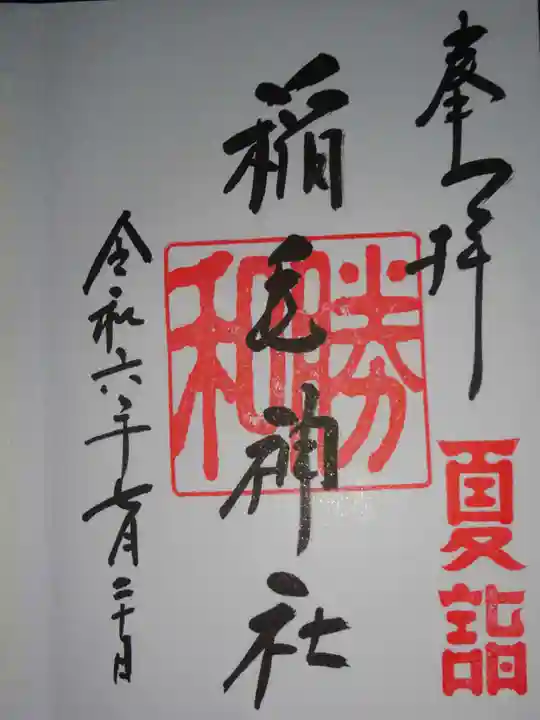 奉拝
夏詣
稲毛神社
勝和
令和六年七月二十日